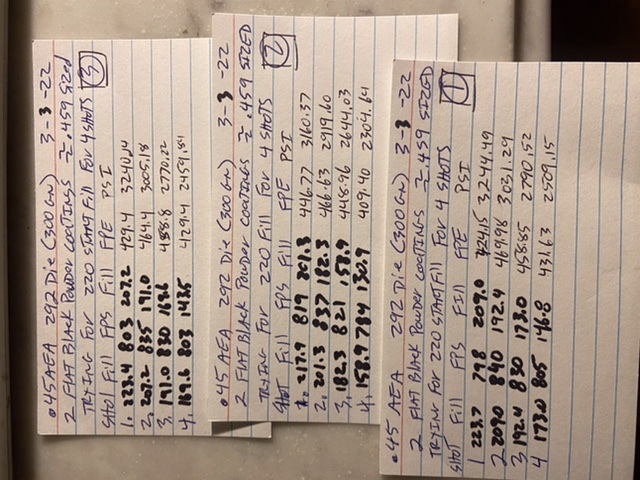 .45 AEA 292 Die (300 Gn) 3-3-22
2 Flat Black Powder Coatings ~ .459 Sized
Trying For 220 Start Fill For 4 Shots 3
Shot Fill FPS Fill FPE PSI
1. 223.4 803 207.2 429.4 3240.14
2. 207.2 835 191.0 464.4 3005.18
3. 191.0 830 169.6 458.8 2770.22
4. 169.6 803 143.5 429.4 2459.84
.45 AEA 292 Die (300 Gn) 3-3-22
2 Flat Black Powder Coatings ~ .459 SIZED
Trying For 220 Fill For 4 SHOTS 2
Shot Fill FPS Fill FPE PSI
1. 217.9 819 201.3 446.77 3160.37
2. 201.3 837 182.3 466.63 2919.60
3. 182.3 821 158.9 448.96 2644.03
4. 158.9 784 130.9 409.40 2304.64
.45 AEA 292 Die (300 Gn) 3-3-22
2 Flat Black Powder Coatings ~ .459 SIZED
Trying For 220 START Fill For 4 SHOTS 1
Shot Fill FPS Fill FPE PSI
1 223.7 798 209.0 424.15 3244.49
2 2090 840 192.4 469.98 3031.29
3 192.4 830 173.0 458.85 2790.52
4 173.0 805 146.8 431.63 2509.15